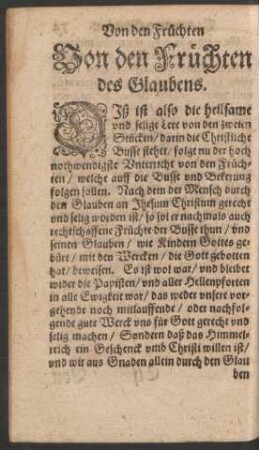 Von den Früchten
Von den Früchten
des Glaubens.
DIß ist also die heilsame
vnd selige Lere von den zweien
Stücken / darin die Christliche
Busse stehet / folge nu der hoch
notwendigste Vnterricht von den Früch-
ten / welche auff die Busse vnd Bekerung
folgen sollen. Nach dem der Mensch durch
den Glauben an Jhesum Christum gerecht
vnd selig worden ist / so sol er nachmals auch
rechtschaffene Früchte der Busse thun / vnd
seinen Glauben / wie Kindern Gottes ge-
bürt / mit den Wercken / die Gott gebotten
hat / beweisen. Es ist wol war / vnd bleibet
wider die Papisten / vnd aller Hellenpforten
in alle Ewigkeit war / das weder vnsere vor-
gehende noch mitlauffende / oder nachfol-
gende gute Werck vns für Gott gerecht vnd
selig machen / Sondern daß das Himmel-
reich ein Geschenck vmb Christi willen ist /
vnd wir aus Gnaden allein durch den Glau
ben